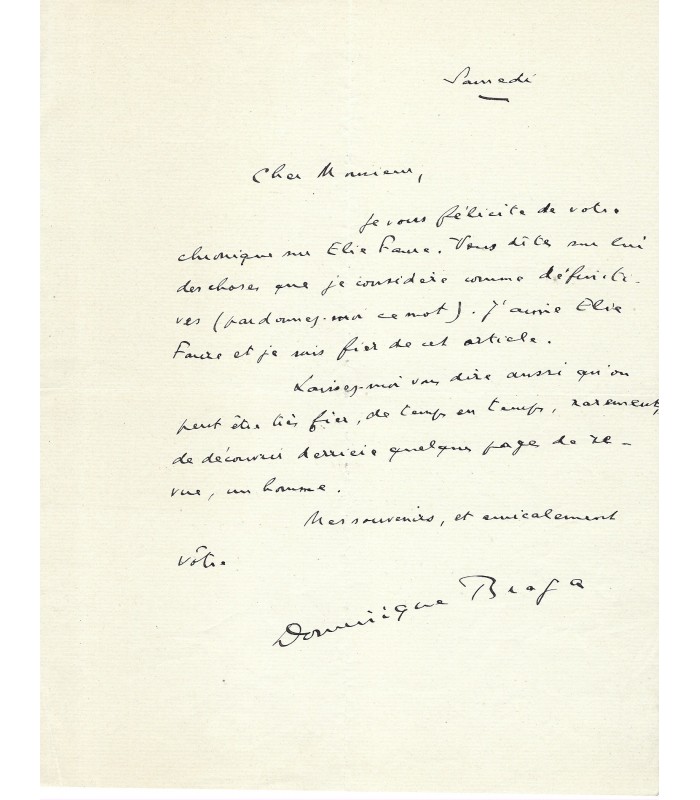 Samedi
Cher Monsieur,
Je vous félicite de votre
chronique sur Elie Faure. Vous dites sur lui
des choses que je considère comme définiti-
ves (pardonnez-moi ce mot). J'aime Elie
Faure et je suis fier de cet article.
Laissez-moi vous dire aussi qu'on
peut être très fier, de temps en temps, rarement,
de découvrir derrière quelque page de re-
vue, un homme.
Mes souvenirs, et amicalement
vôtre
Dominique Braga